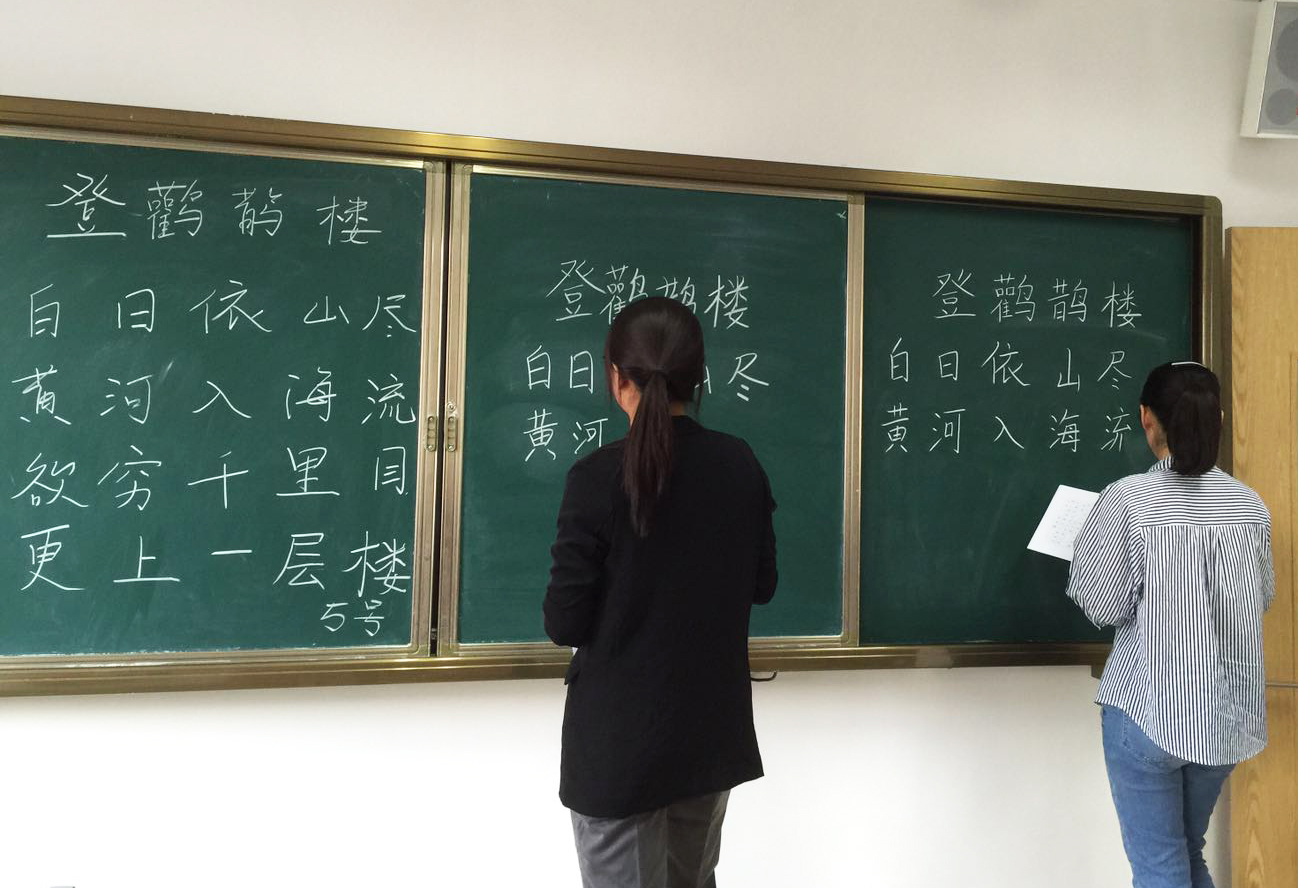 登鹳鹊楼
白日依山尽
黄河入海流
欲穷千里目
更上一层楼
5号
登鹳鹊楼
白日 尽
黄河
登鹳鹊楼
白日依山尽
黄河入海流